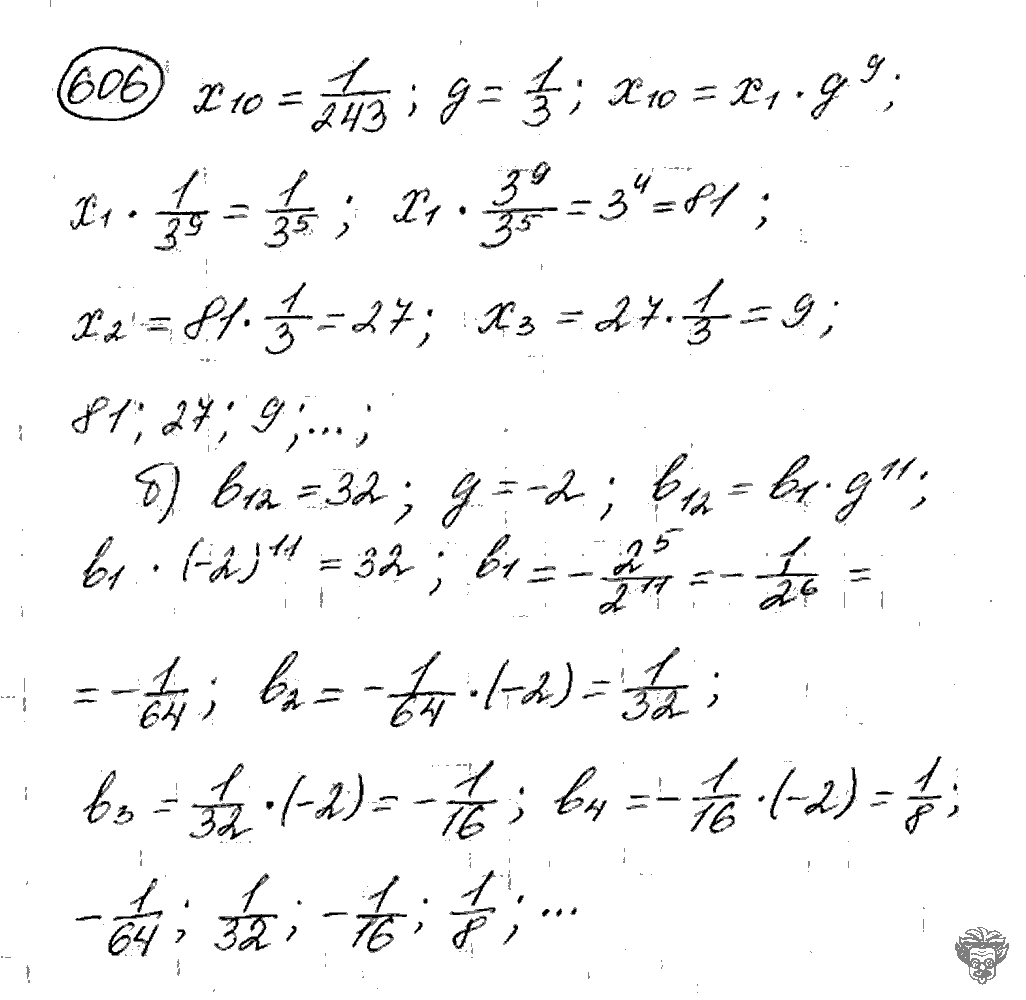 606 x₁₀ = 1/243; g = 1/3; x₁₀ = x₁ · g⁹;
x₁ · 1/3⁹ = 1/3⁵; x₁ · 3⁹/3⁵ = 3⁴ = 81;
x₂ = 81 · 1/3 = 27; x₃ = 27 · 1/3 = 9;
81; 27; 9; ...;
б) b₁₂ = 32; g = -2; b₁₂ = b₁ · g¹¹;
b₁ · (-2)¹¹ = 32; b₁ = - 2⁵/2¹¹ = - 1/2⁶ =
= - 1/64; b₂ = - 1/64 · (-2) = 1/32;
b₃ = 1/32 · (-2) = - 1/16; b₄ = - 1/16 · (-2) = 1/8;
- 1/64; 1/32; - 1/16; 1/8; ...